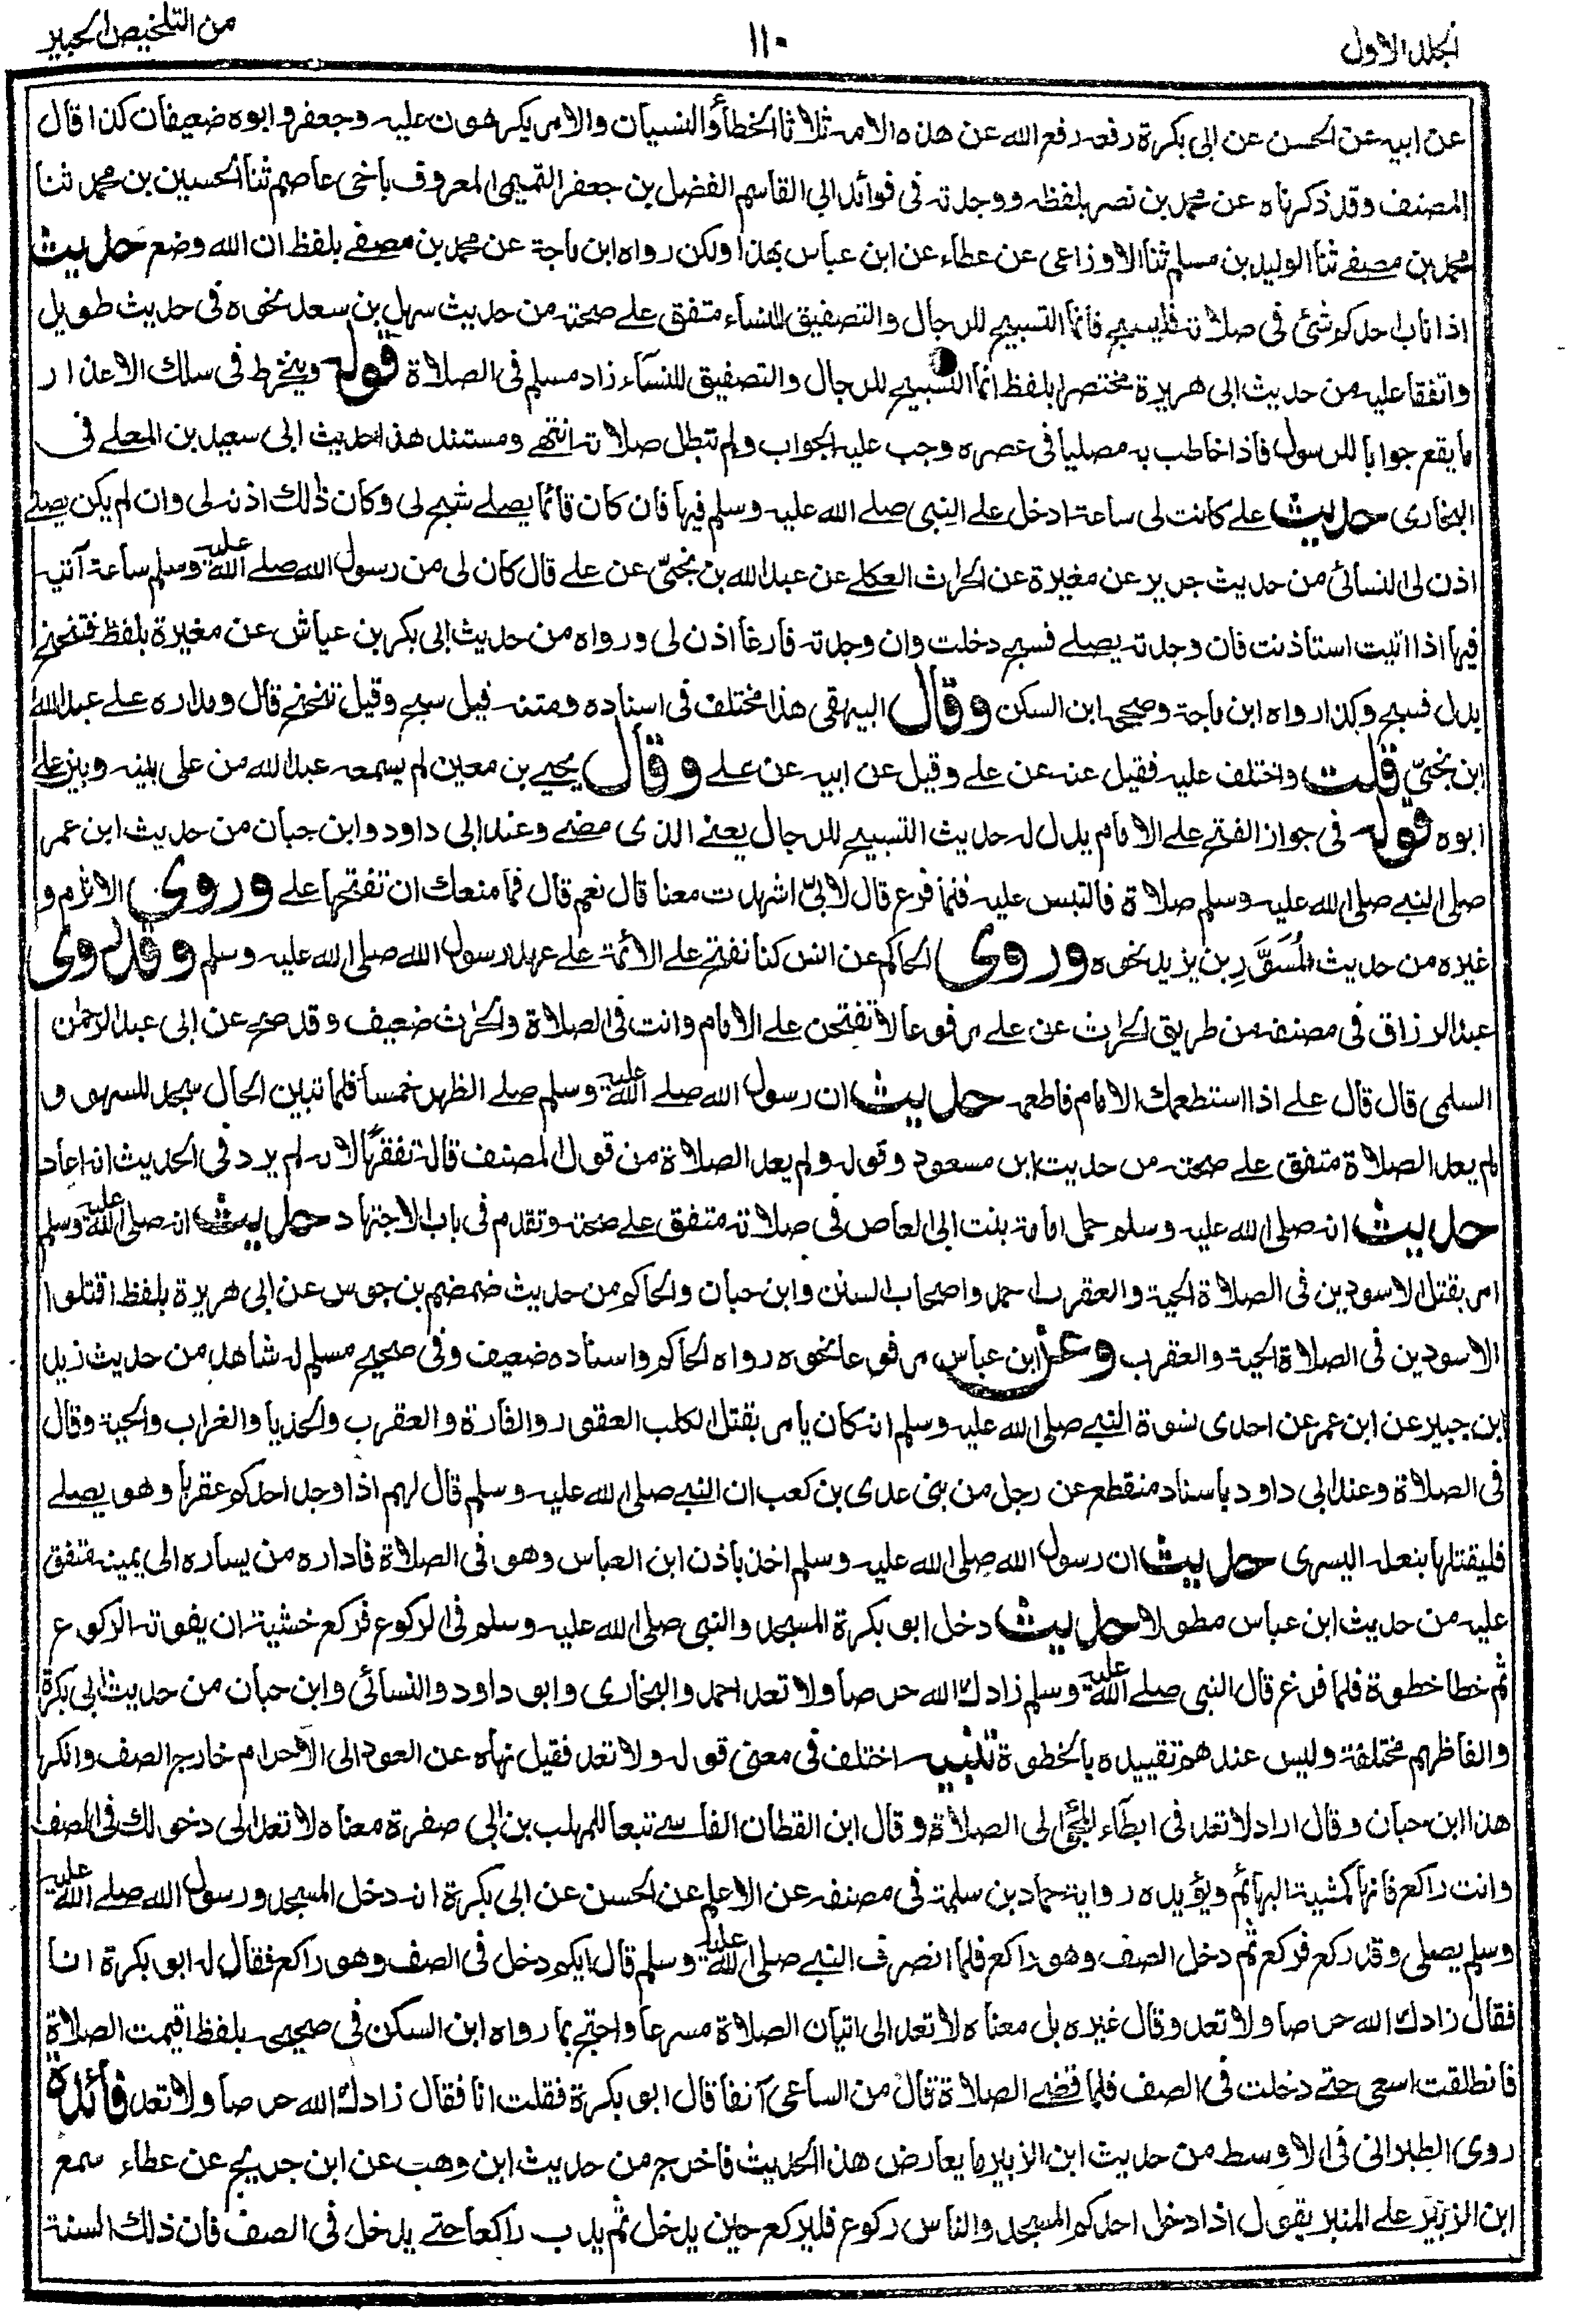 المجلد الاول
١١٠
من التلخيص الحبير
عن ابيه عن الحسن عن ابى بكرة رفعه رفع الله عن هذه الامة ثلاثا الخطأ والنسيان والامر يكرهون عليه وجعفر و ابوه ضعيفان كذا قال
المصنف وقد ذكرناه عن محمد بن نصر بلفظه ووجدته فى فوائد ابي القاسم الفضل بن جعفر التميمي المعروف بأخى عاصم ثنا الحسين بن محمد ثنا
محمد بن مصفے ثنا الوليد بن مسلم ثنا الاوزاعى عن عطاء عن ابن عباس بهذا ولكن رواه ابن ماجة عن محمد بن مصفے بلفظ ان الله وضع حديث
اذا ناب احدكم شئ فى صلاته فليسبح فانما التسبيح للرجال والتصفيق للنساء متفق علے صحته من حديث سهل بن سعد نحوه فى حديث طويل
واتفقا عليه من حديث ابى هريرة مختصرا بلفظ انما التسبيح للرجال والتصفيق للنساء زاد مسلم فى الصلاة قوله وينخرط فى سلك الاعذار
ما يقع جوابا للرسول فاذا خاطب به مصليا فى عصره وجب عليه الجواب ولم تبطل صلاته انتهے ومستند هذا حديث ابى سعيد بن المعلے فى
البخارى حديث علے كانت لى ساعة ادخل علے النبى صلے الله عليه وسلم فيها فان كان قائما يصلے سبح لى وكان ذلك اذنه لى وان لم يكن يصلے
اذن لى النسائى من حديث جرير عن مغيرة عن الحارث العكلے عن عبد الله بن نجىّ عن علے قال كان لى من رسول الله صلے الله عليه وسلم ساعة آتيه
فيها اذا اتيت استأذنت فان وجدته يصلے فسبح دخلت وان وجدته فارغا اذن لى ورواه من حديث ابى بكر بن عياش عن مغيرة بلفظ فتنحنح
بدل فسبح وكذا رواه ابن ماجة وصححه ابن السكن وقال البيهقى هذا مختلف فى اسناده ومتنه فقيل سبح وقيل تنحنح قال ومداره علے عبد الله
ابن نجىّ قلت واختلف عليه فقيل عنه عن علے وقيل عن ابيه عن علے وقال يحيے بن معين لم يسمعه عبد الله من على بينه وبين علے
ابوه قوله فى جواز الفتح علے الامام يدل له حديث التسبيح للرجال يعنے الذى مضے وعند ابى داود وابن حبان من حديث ابن عمر
صلى النبے صلى الله عليه وسلم صلاة فالتبس عليه فلما فرغ قال لابىّ اشهدت معنا قال نعم قال فما منعك ان تفتحها علے وروى الاثرم و
غيره من حديث المُسَوَّرِ بن يزيد نحوه وروى الحاكم عن انس كنا نفتح علے الائمة علے عهد رسول الله صلى الله عليه وسلم وقد روى
عبد الرزاق فى مصنفه من طريق الحارث عن علے مرفوعا لا تفتحن علے الامام وانت فى الصلاة والحارث ضعيف وقد صح عن ابى عبد الرحمن
السلمى قال قال علے اذا استطعمك الامام فاطعمه حديث ان رسول الله صلے الله عليه وسلم صلے الظهر خمسا فلما تبين الحال سجد للسهو و
لم يعد الصلاة متفق علے صحته من حديث ابن مسعود وقوله ولم يعد الصلاة من قول المصنف قاله تفقها لانه لم يرد فى الحديث انه اعاد
حديث انه صلى الله عليه وسلم حمل امامة بنت ابى العاص فى صلاته متفق علے صحته وتقدم فى باب الاجتهاد حديث انه صلى الله عليه وسلم
امر بقتل الاسودين فى الصلاة الحية والعقرب احمد واصحاب السنن وابن حبان والحاكم من حديث ضمضم بن جوس عن ابى هريرة بلفظ اقتلوا
الاسودين فى الصلاة الحية والعقرب وعن ابن عباس مرفوعا نحوه رواه الحاكم واسناده ضعيف وفى صحيح مسلم له شاهد من حديث زيد
ابن جبير عن ابن عمر عن احدى نسوة النبے صلى الله عليه وسلم انه كان يأمر بقتل الكلب العقور والفارة والعقرب والحذيا والغراب والحية وقال
فى الصلاة وعند ابى داود بأسناد منقطع عن رجل من بنى عدى بن كعب ان النبے صلى الله عليه وسلم قال لهم اذا وجد احدكم عقربا وهو يصلے
فليقتلها بنعله اليسرى حديث ان رسول الله صلى الله عليه وسلم اخذ باذن ابن العباس وهو فى الصلاة فاداره من يساره الى يمينه متفق
عليه من حديث ابن عباس مطولا حديث دخل ابو بكرة المسجد والنبى صلى الله عليه وسلم فى الركوع فركع خشية ان يفوته الركوع
ثم خطا خطوة فلما فرغ قال النبى صلے الله عليه وسلم زادك الله حرصا ولا تعد احمد والبخارى وابو داود والنسائى وابن حبان من حديث ابى بكرة
والفاظهم مختلفة وليس عندهم تقييده بالخطوة تنبيه اختلف فى معنى قوله ولا تعد فقيل نهاه عن العود الى الاحرام خارج الصف وانكر
هذا ابن حبان وقال اراد لا تعد فى ابطاء المجئ الى الصلاة وقال ابن القطان الفاسے تبعا للمهلب بن ابي صفرة معناه لا تعد الى دخولك فى الصف
وانت راكع فانها كمشية البهائم ويؤيده رواية حماد بن سلمة فى مصنفه عن الاعلم عن الحسن عن ابى بكرة انه دخل المسجد ورسول الله صلے الله عليه
وسلم يصلى وقد ركع فركع ثم دخل الصف وهو راكع فلما انصرف النبے صلى الله عليه وسلم قال ايكم دخل فى الصف وهو راكع فقال له ابو بكرة انا
فقال زادك الله حرصا ولا تعد وقال غيره بل معناه لا تعد الى اتيان الصلاة مسرعا واحتج بما رواه ابن السكن فى صحيحه بلفظ اقيمت الصلاة
فانطلقت اسعى حتے دخلت فى الصف فلما قضے الصلاة قال من الساعى آنفا قال ابو بكرة فقلت انا فقال زادك الله حرصا ولا تعد فائدة
روى الطبرانى فى الاوسط من حديث ابن الزبير ما يعارض هذا الحديث فاخرج من حديث ابن وهب عن ابن جريج عن عطاء سمع
ابن الزبير علے المنبر يقول اذا دخل احدكم المسجد والناس ركوع فليركع حين يدخل ثم يدب راكعا حتے يدخل فى الصف فان ذلك السنة